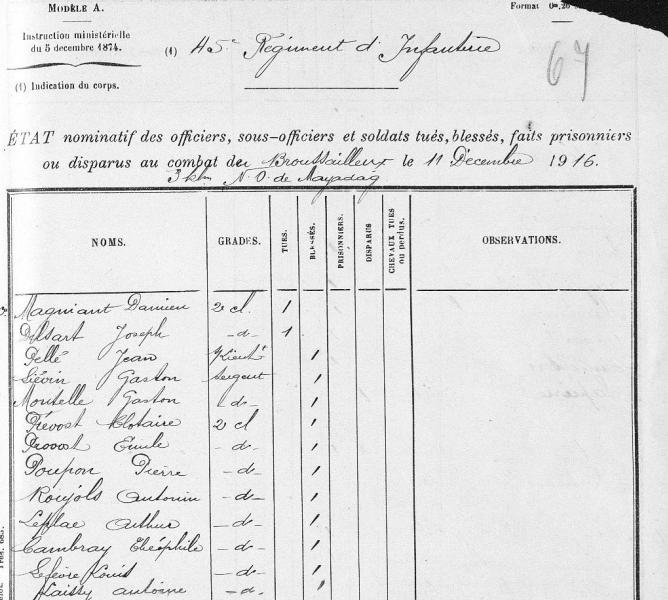 MODÈLE A.
Format 0m,20
Instruction ministérielle
du 5 décembre 1874.
(1) 45e Régiment d'Infanterie
67
(1) Indication du corps.
ÉTAT nominatif des officiers, sous-officiers et soldats tués, blessés, faits prisonniers
ou disparus au combat de Broussailleux le 11 Décembre 1916.
3 klm N.O. de Mayadag
NOMS. GRADES. TUÉS. BLESSÉS. PRISONNIERS. DISPARUS CHEVAUX TUÉS ou perdus. OBSERVATIONS.
Magniant Damien 2e cl. 1
Joseph -d- 1
Pellé Jean 1
Liévin Gaston Sergent 1
Montelle Gaston -d- 1
Prévost Clotaire 2e cl 1
Provost Émile -d- 1
Poupon Pierre -d- 1
Roujols Antonin -d- 1
Leplae Arthur -d- 1
Cambray Théophile -d- 1
Lefèvre Louis -d- 1
Antoine -d- 1